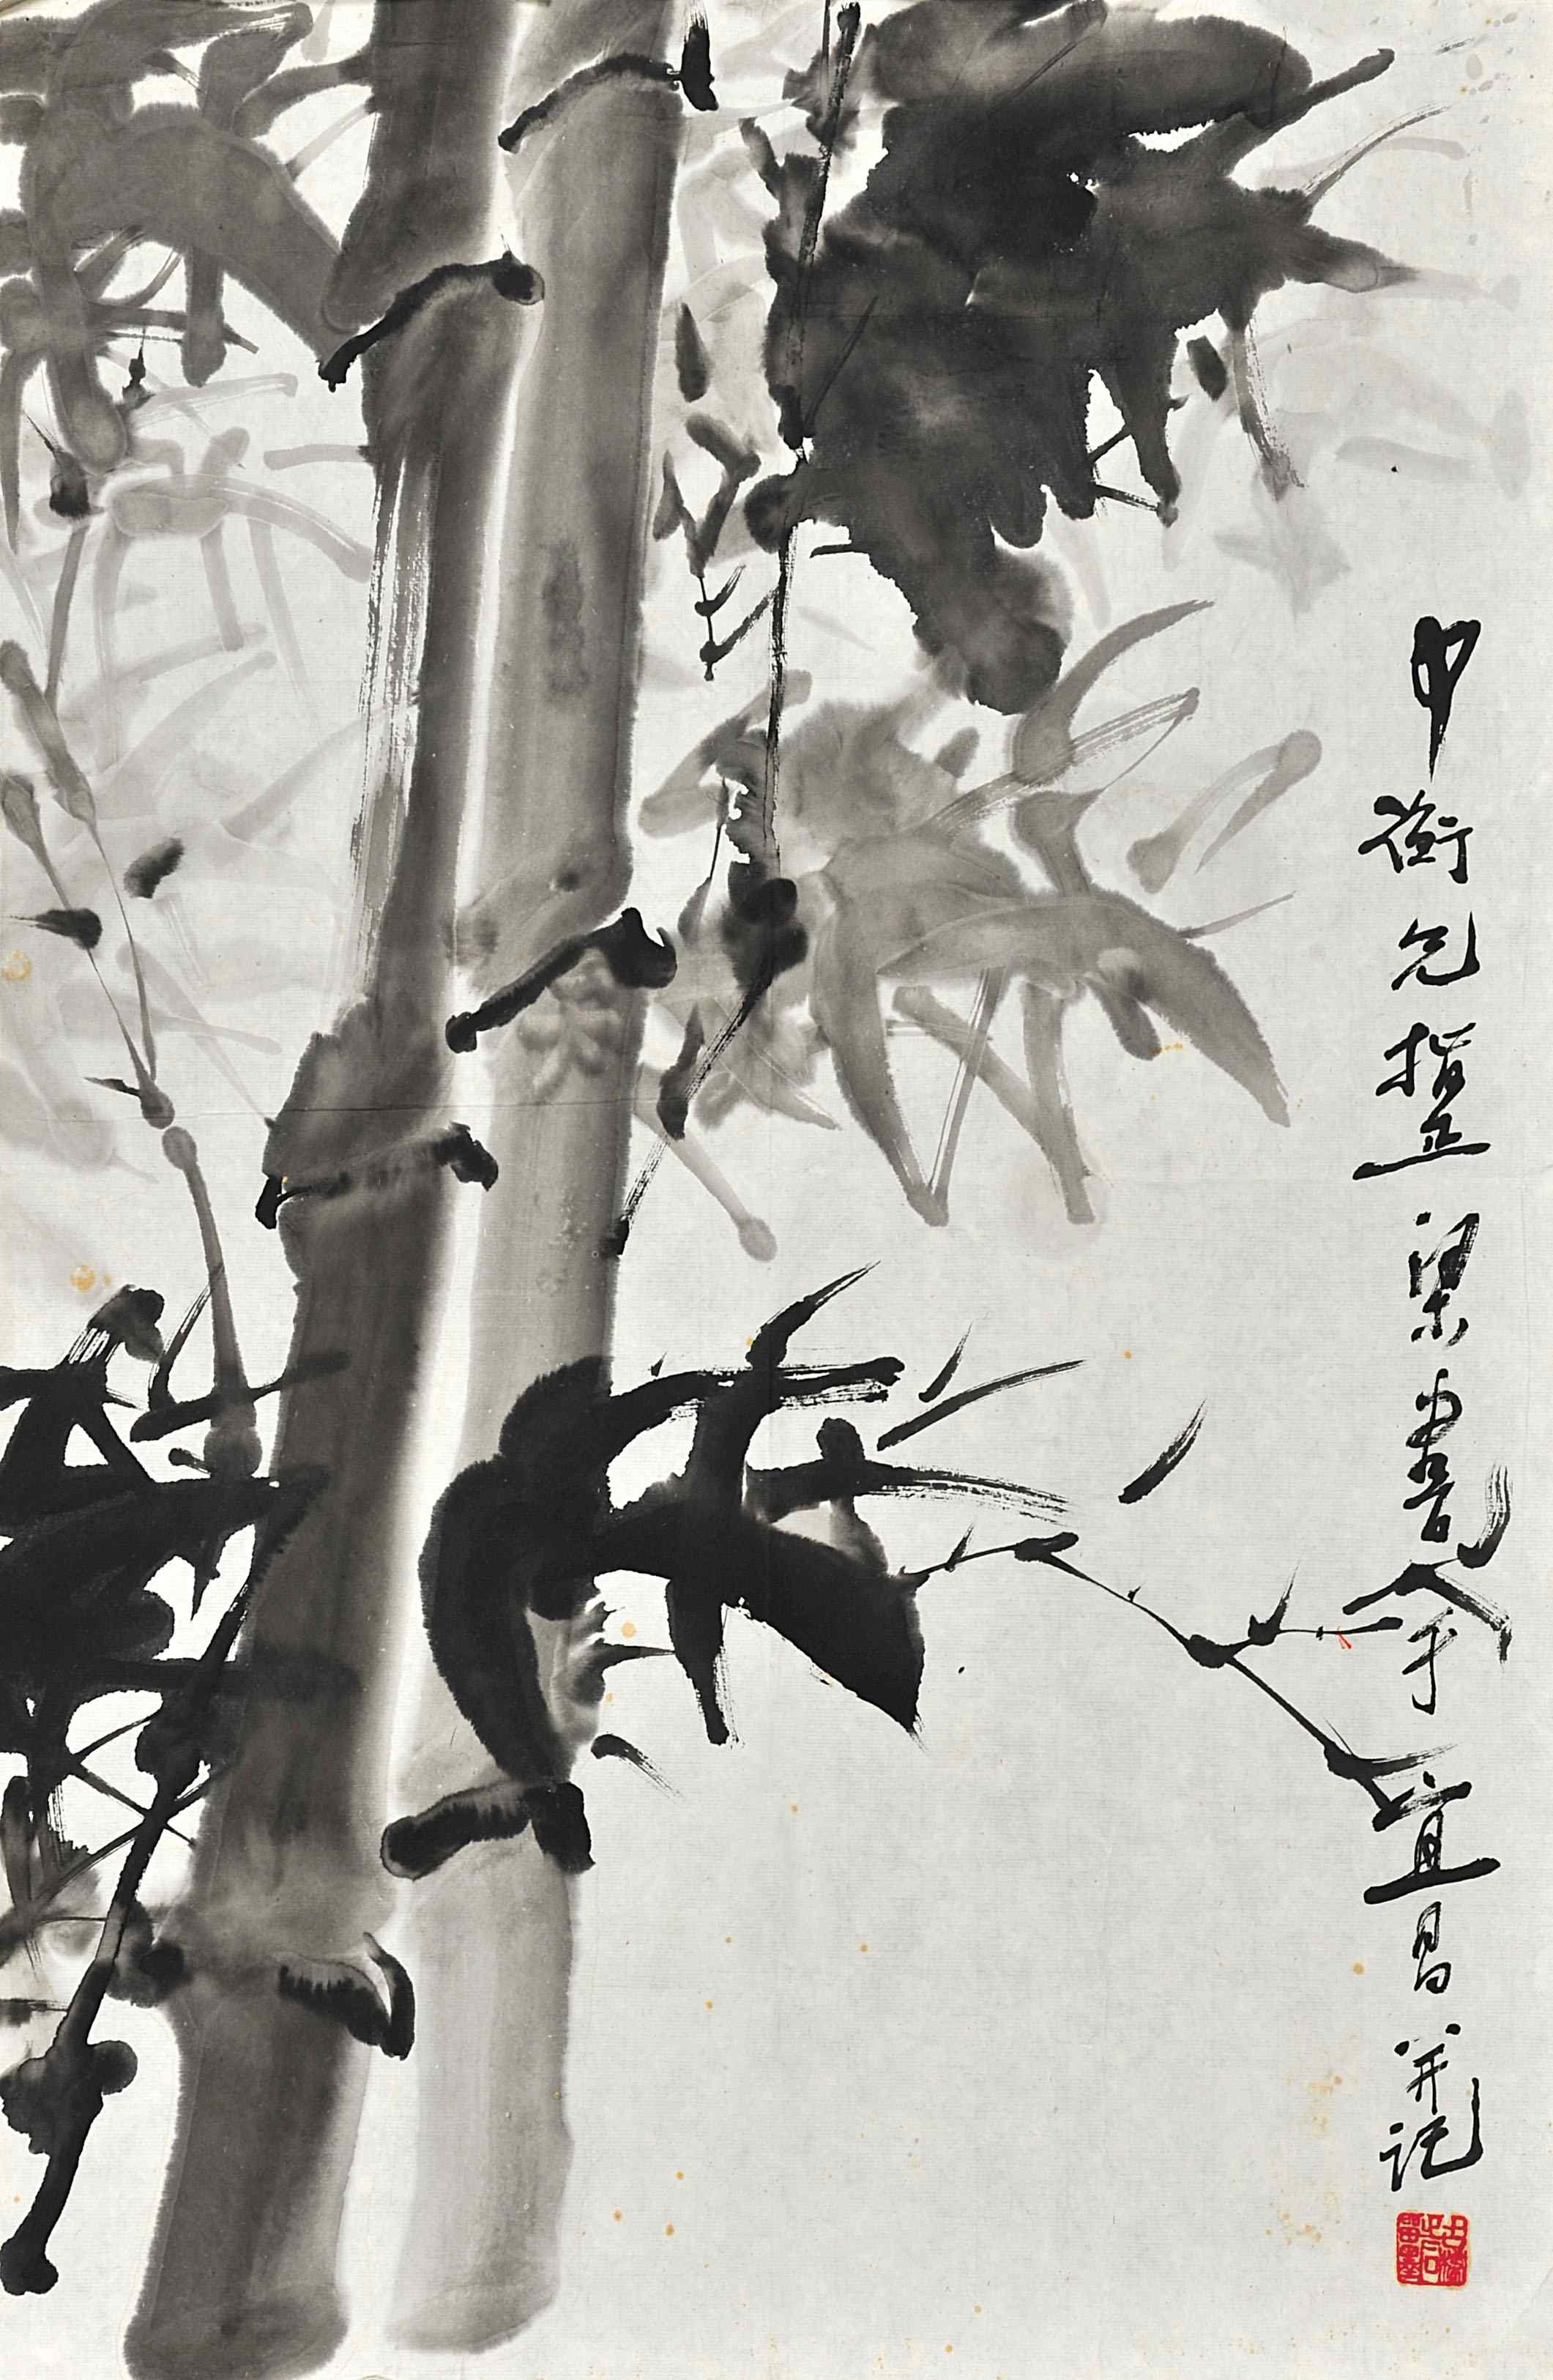 中衡兄指正梁書令于宜昌并记